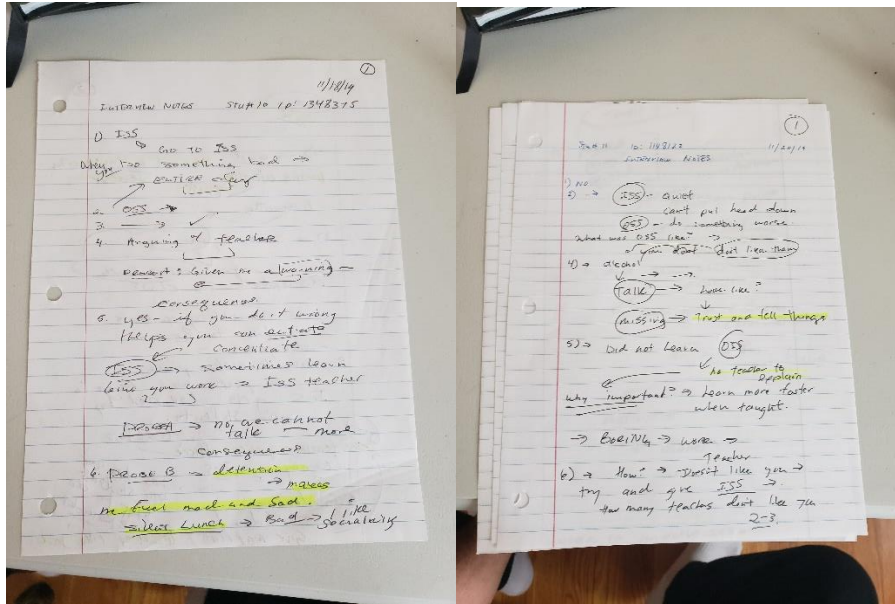 1
11/18/19
INTERVIEW NOTES ID: 1348375
1) ISS
Go TO ISS
When you do something bad →
2. OSS →
3. → ✓
4. Arguing teacher
Given me a warning –
consequence.
5. yes – if you do it wrong
Helps you can activate
Concentrate
ISS → Sometimes learn
you work → ISS teacher
PROBE A → no we cannot
talk – more
consequences
6. PROBE B → detention
→ makes
me feel mad and sad.
Silent Lunch → Bad → I like
socializing
1
ID: 11/20/19
INTERVIEW NOTES
1) NO
2) → ISS – quiet
Can't put head down
OSS – do something worse.
What was OSS like? →
you don't don't like them
4) → alcohol
Talk → how like?
missing → Trust and tell things
5) → Did not Learn OSS
no teacher to
explain
Why important? → Learn more faster
when taught.
→ BORING → work →
Teacher
6) → How? → Doesn't like you →
try and give ISS →
How many teachers don't like you
2-3